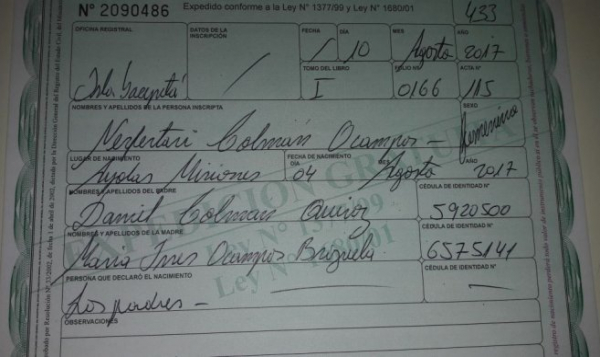 N° 2090486 Expedido conforme a la Ley N° 1377/99 y Ley N° 1680/01 433
OFICINA REGISTRAL DATOS DE LA INSCRIPCIÓN FECHA DIA MES AÑO
/ / 10 Agosto 2017
TOMO DEL LIBRO FOLIO N° ACTA N°
Isla Yacyretá I 0166 115
NOMBRES Y APELLIDOS DE LA PERSONA INSCRIPTA SEXO
Nefertari Colmán Ocampos - Femenino
LUGAR DE NACIMIENTO FECHA DE NACIMIENTO DIA MES AÑO
Ayolas Misiones 04 Agosto 2017
NOMBRES Y APELLIDOS DEL PADRE CÉDULA DE IDENTIDAD N°
Daniel Colmán Quiroz 5920500
NOMBRES Y APELLIDOS DE LA MADRE CÉDULA DE IDENTIDAD N°
Maria Ines Ocampos Brizuela 6575141
PERSONA QUE DECLARÓ EL NACIMIENTO CÉDULA DE IDENTIDAD N°
Los padres -
OBSERVACIONES
EXPEDICIÓN GRATUITA
Ley N° 1377/99
Ley N° 1680/01